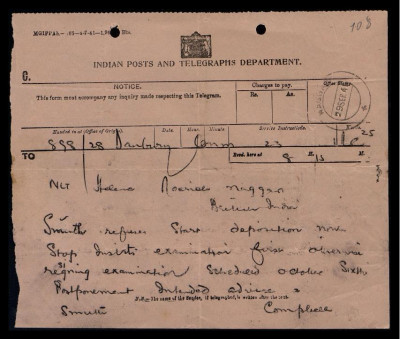 103
INDIAN POSTS AND TELEGRAPHS DEPARTMENT.
C.
NOTICE.
This form must accompany any inquiry made respecting this Telegram.
Charges to pay.
Rs. As.
Office Stamp
Handed in at (Office of Origin). Date Hour Minute Service Instructions.
898 28 Danbury Conn 23 25
TO
Recd. here at 8 H. 15 M.
NLT Helena Roerich Naggar
British India
Smith refuses start deposition now
Stop insists examination first
examination scheduled October Sixth
Postponement intended advise
N.B.—The name of the Sender, if telegraphed, is written after the text.
Smith